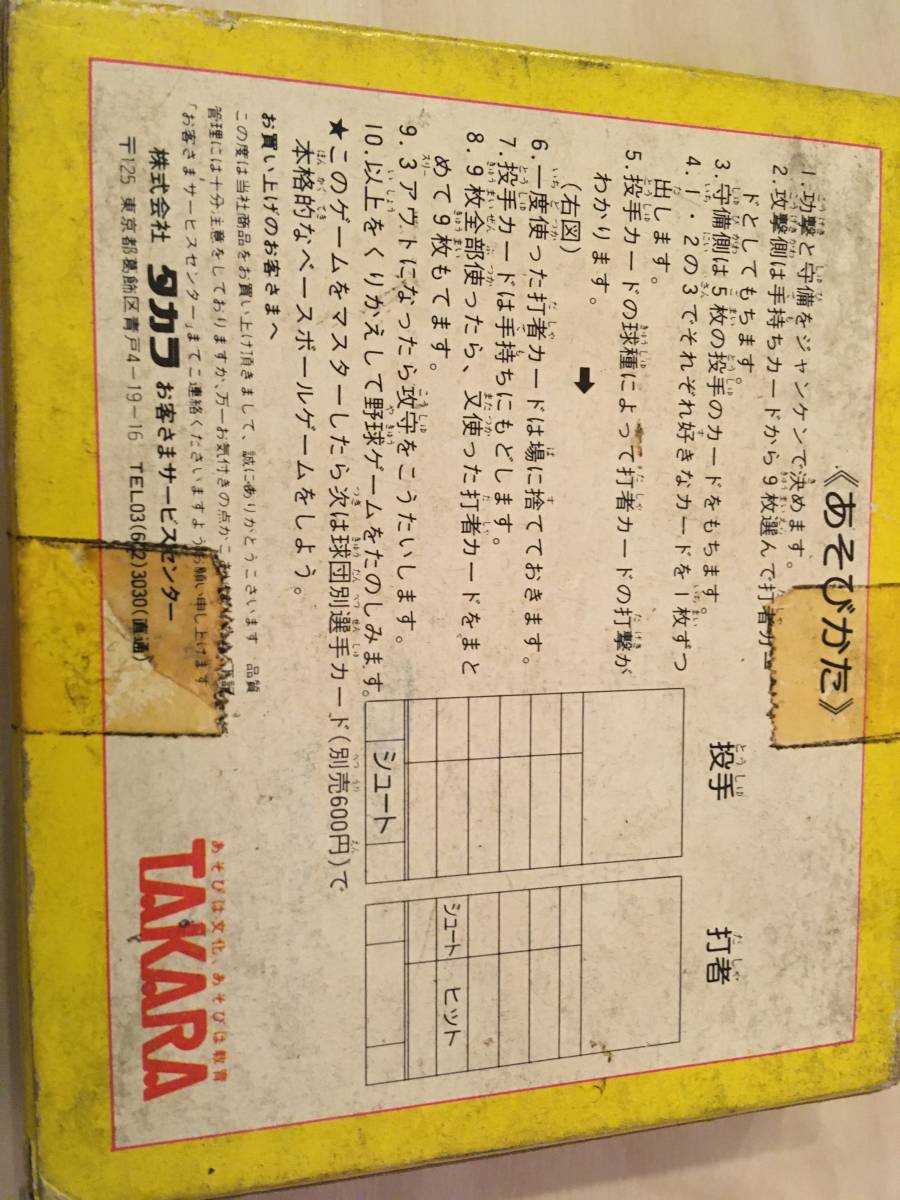 《あそびかた》
1.功撃と守備をジャンケンで決めます。
2.攻撃側は手持ちカードから9枚選んで打者カー
ドとしてもちます。
3.守備側は5枚の投手のカードをもちます。
4.1・2の3でそれぞれ好きなカードを1枚ずつ
出します。
5.投手カードの球種によって打者カードの打撃が
わかります。
(右図)
6.一度使った打者カードは場に捨てておきます。
7.投手カードは手持ちにもどします。
8.9枚全部使ったら、又使った打者カードをまと
めて9枚もてます。
9.3アウトになったら攻守をこうたいします。
10.以上をくりかえして野球ゲームをたのしみます。
★このゲームをマスターしたら次は球団別選手カード(別売600円)で
本格的なベースボールゲームをしよう。
投手
シュート
打者
シュート ヒット
お買い上げのお客さまへ
この度は当社商品をお買い上げ頂きまして、誠にありがとうございます 品質
管理には十分注意をしておりますが、万一お気付きの点がご
「お客さまサービスセンター」までご連絡くださいますようお願い申し上げます
株式会社 タカラ お客さまサービスセンター
〒125 東京都葛飾区青戸4-19-16 TEL03(602)3030(直通)
あそびは文化、あそびは教育
TAKARA